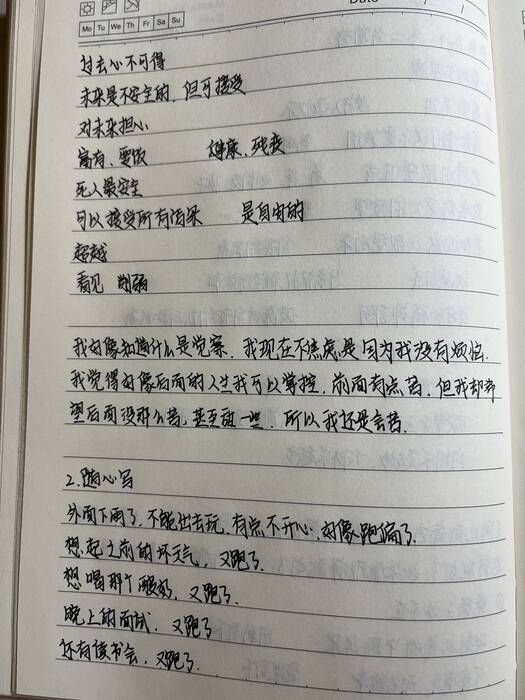 Date / /
Mo Tu We Th Fr Sa Su
过去心不可得
未来是不安全的，但可接受
对未来担心
富有、要饭 健康、残疾
死人最安全
可以接受所有结果 是自由的
超越
看见 削弱
我好像知道什么是觉察，我现在不焦虑是因为我没有烦恼.
我觉得好像后面的人生我可以掌控，前面有点苦，但我却希
望后面没那么苦，甚至甜一些，所以我还是会苦.
2.随心写
外面下雨了，不能出去玩，有点不开心，好像跑偏了.
想起之前的坏天气，又跑了
想喝那个酸奶，又跑了.
晚上的面试，又跑了
还有读书会，又跑了.